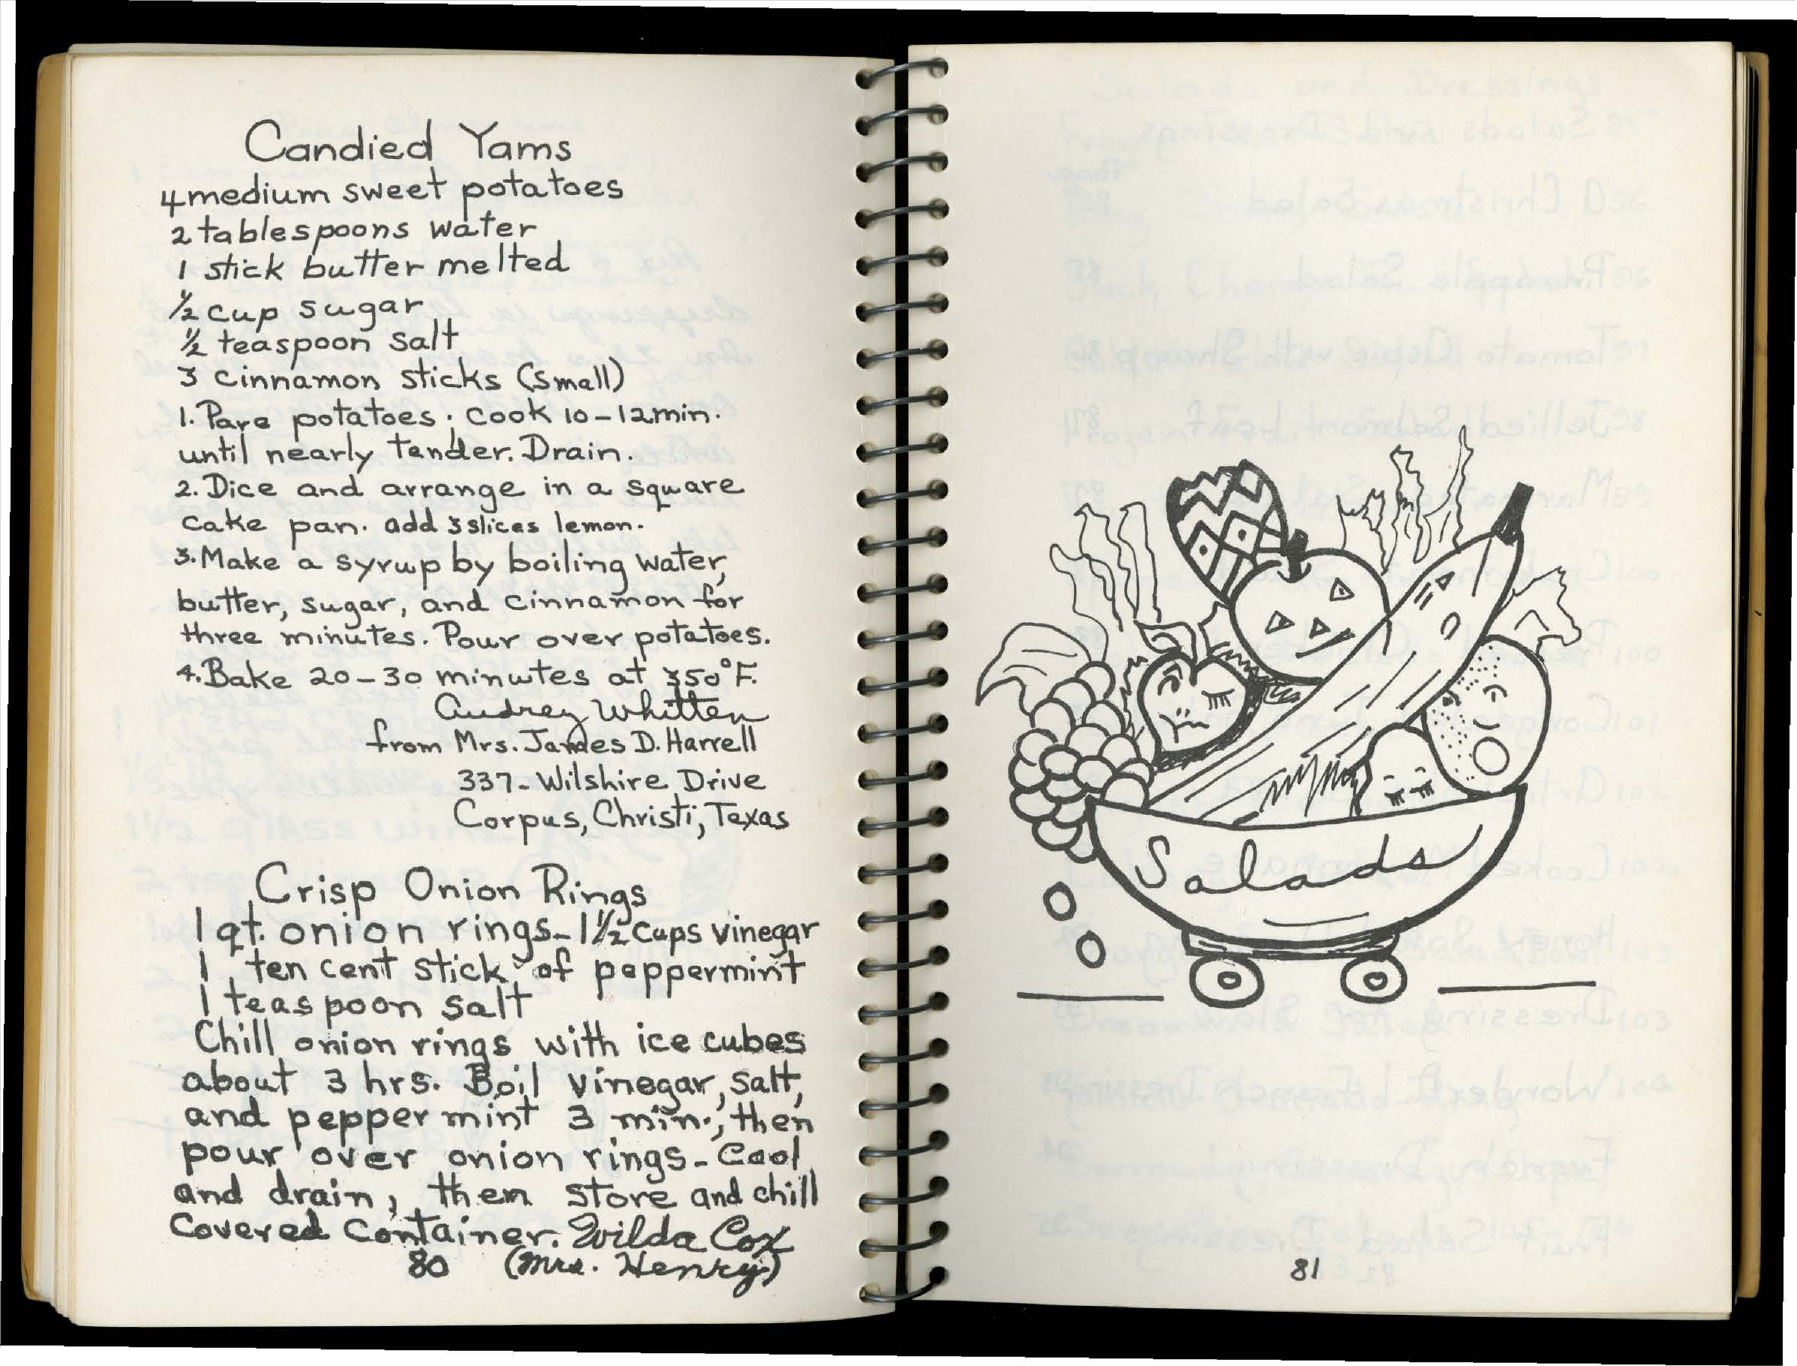 Candied Yams
4 medium sweet potatoes
2 tablespoons water
1 stick butter melted
½ cup sugar
½ teaspoon salt
3 cinnamon sticks (small)
1. Pare potatoes; cook 10-12 min.
until nearly tender. Drain.
2. Dice and arrange in a square
cake pan. add 3 slices lemon.
3. Make a syrup by boiling water,
butter, sugar, and cinnamon for
three minutes. Pour over potatoes.
4. Bake 20-30 minutes at 350°F.
Audrey Whitten
from Mrs. James D. Harrell
337-Wilshire Drive
Corpus, Christi, Texas
Crisp Onion Rings
1 qt. onion rings-1½ cups vinegar
1 ten cent stick of peppermint
1 teaspoon salt
Chill onion rings with ice cubes
about 3 hrs. Boil vinegar, salt,
and peppermint 3 min., then
pour over onion rings-Cool
and drain, then store and chill
Covered Container. Wilda Cox
80 (Mrs. Henry)
Salads
81